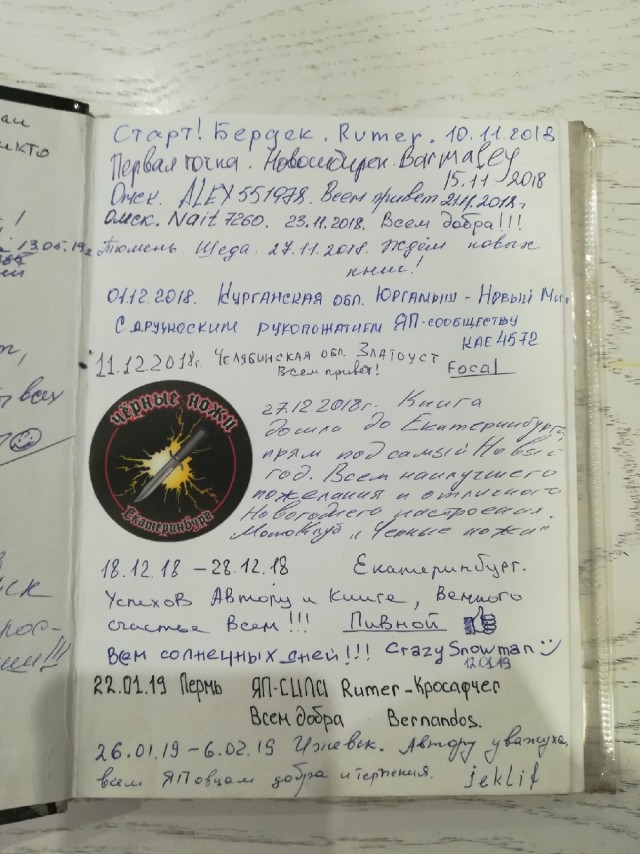 аи
икто
!
13.05.19г.
ей
т,
всех
ск
рос-
ии!!!
Старт! Бердск. Rumer. 10.11.2018
Первая точка. Новосибирск. Barmaley
15.11.2018
Омск. ALEX551978. Всем привет 21.11.2018г.
Омск. Nait 7260. 23.11.2018. Всем добра!!!
Тюмень. Щеда. 27.11.2018. Ждём новых
книг!
01.12.2018. Курганская обл. Юргамыш - Новый Ми
С дружеским рукопожатием ЯП-сообществу
КАЕ4572
11.12.2018г. Челябинская обл. Златоуст
Всем привет! Focal
чёрные ножи
Екатеринбург
27.12.2018г. Книга
дошла до Екатеринбурга,
прям под самый Новый
год. Всем наилучшего
пожелания и отличного
Новогоднего настроения.
МотоКлуб "Чёрные ножи"
18.12.18 – 28.12.18 Екатеринбург.
Успехов Автору и Книге, Вемного
счастья Всем!!! Пивной
Всем солнечных дней!!! CrazySnowman
12.01.19
22.01.19 Пермь ЯП-СИЛА Rumer-Красафчег
Всем добра Bernandos.
26.01.19 – 6.02.19 Ижевск. Автору уважуха,
всем ЯПовцам добра и терпения. jeklif